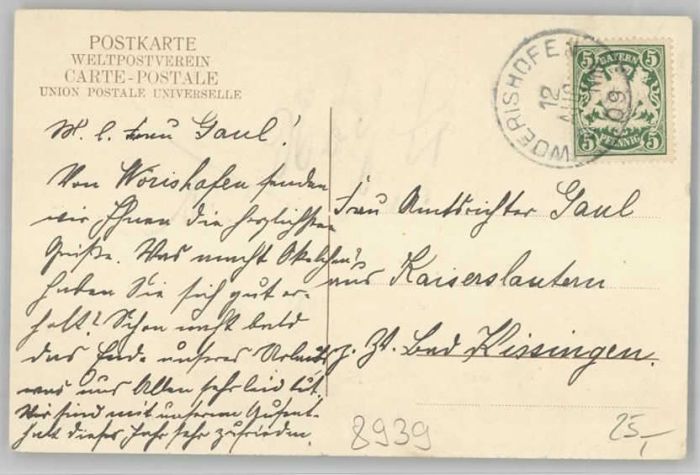 POSTKARTE
WELTPOSTVEREIN
CARTE-POSTALE
UNION POSTALE UNIVERSELLE
WOERISHOFEN
12
AUG
09
BAYERN
5 5
5 5
PFENNIG
M. l. Frau Gaul!
Von Wörishofen senden
wir Ihnen die herzlichsten
Grüße. Was macht
haben Sie sich gut er-
holt? Schon naht bald
das Ende unseres Urlaubs
was uns Allen sehr leid tut.
Wir sind mit unserem Aufent-
halt dieses Jahr sehr zufrieden.
Frau Amtsrichter Gaul
aus Kaiserslautern
z. Zt. Bad Kissingen.
8939
25,-